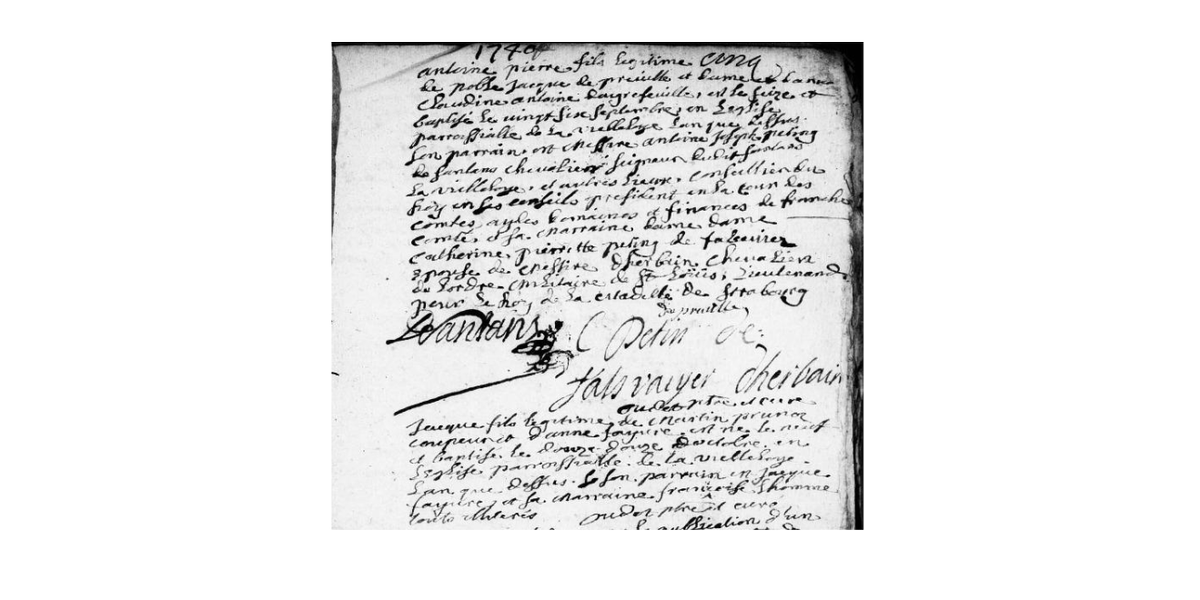 1740
antoine pierre fils legitime
de noble Jacque de preville et dame
Claudine antoine daigrefeuille, est le seize et
baptisé le vingt sixe septembre, en Leglise
parroissialle de la vielleloye Lan que dessus.
son parrain, est Messire antoine Joseph peting
de santans chevalier seigneur dudit santans
La vielleloye, et autres Lieux, Conseillier du
Roy en ses conseils president en la cour des
comtes aydes domaines et finances de franche
comté, et sa marraine dame dame
Catherine pierrette peting de
epouse de Messire dherbain Chevalier
de Lordre Militaire de St Loüis, Lieutenand
pour le Roy de la citadelle de strabourg
de preville
De santans C Petin de
dherbain
oudot ptre et cure
Jacque fils legitime de Martin prunot
coupeur et danne fayure est né le neuf
et baptisé le douze doctobre en
Leglise parroissialle de la vielleloye
Lan que dessus. son parrain est Jacque
fayure, et sa marraine françoise Lhomme
touts illiterés oudot ptre et curé
la publication d'un